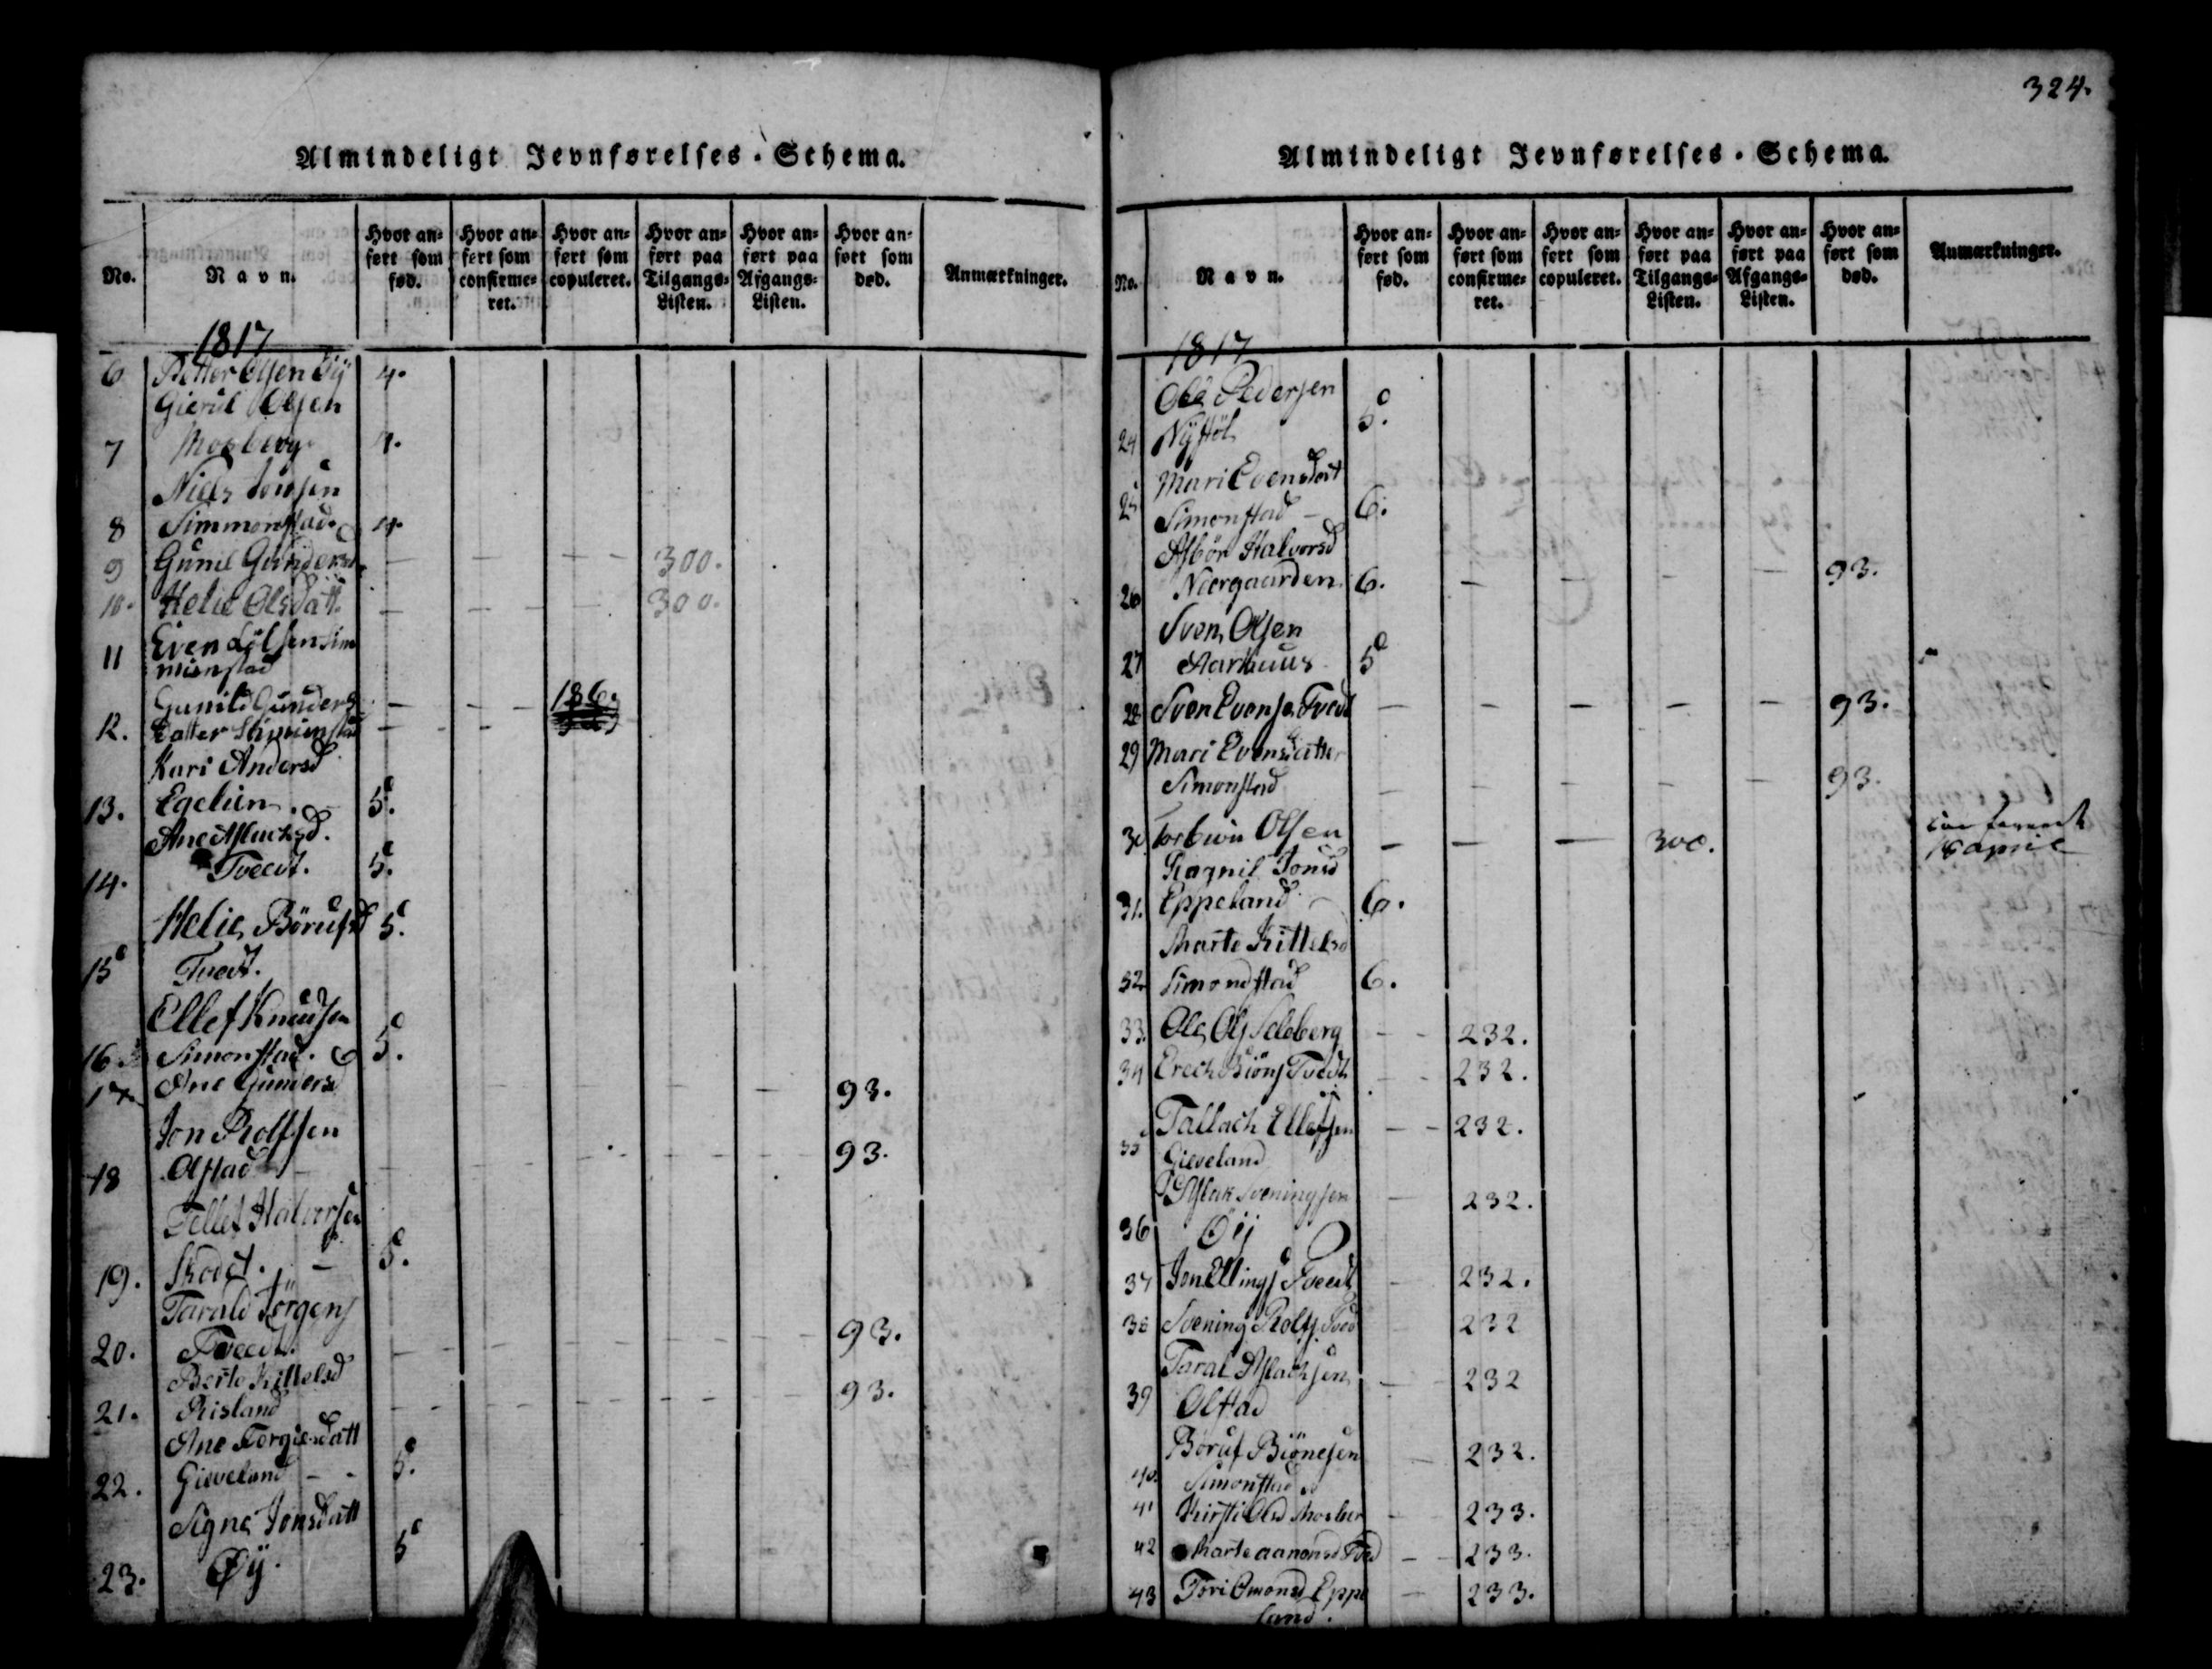 324.
Almindeligt Jevnførelses-Schema.
No. Navn. Hvor anført som fød. Hvor anført som confirmeret. Hvor anført som copuleret. Hvor anført paa Tilgangs-Listen. Hvor anført paa Afgangs-Listen. Hvor anført som død. Anmærkninger.
1817
6 Petter Olsen Øÿ 4.
Gierul Olsen
7 Mosberg 4.
Niels
8 Simmonstad. 4.
9 Gunil Gunders — — — — 300.
10. Helie Olsdatt. — — — — 300.
11 Even Lölsen Sim
monstad
Gunild Gunders — — — 186.
12. Datter Simmonstad — — —
Kari Andersd
13. Egelien. 5.
Ane Aslachsd.
14. Tveedt. 5.
Helie Börufsd 5.
15 Tvedt.
Ellef Knudsen
16. Simonstad. 5.
17 Ane Gundersd — 93.
Jon Rolfsen
18 Olstad — — — — — 93.
Tellef Halvorsen
19. — 5.
Tarald Jörgens
20. Tveedt. — — — — — 93.
Berte Kittelsd
21. Risland — — — — — 93.
Ane Torgiesdatt
22. Gieveland — - 5.
Signe Jonsdatt
23. Øÿ. 5
Almindeligt Jevnførelses-Schema.
No. Navn. Hvor anført som fød. Hvor anført som confirmeret. Hvor anført som copuleret. Hvor anført paa Tilgangs-Listen. Hvor anført paa Afgangs-Listen. Hvor anført som død. Anmærkninger.
1817
Ole Pedersen
24 Nÿstöl 5.
Mari Evensdatt
25 Simonstad — 6.
Asbör Halvorsd
26 Niergaarden 6. — — — — 93.
Sven Olsen
27 Aarhuus 5
28 Sven Evensen Tvedt — — — — — 93.
29 Mari Evensdatter
Simonstad — — — — — 93.
30 Olsen — — — 300. 18 april
Ragnil Jonsd
31. Eppeland — 6.
Marte Kittelsd
32 Simonstad 6.
33. Ole Ols Seleberg — - 232.
34 Erech Biöns Tvedt — - 232.
Tallach Ellefsen — - 232.
35 Gieveland
Aslak Sveningsen — 232.
36 Øÿ
37 Jon Ellings Tveedt — 232.
38 Svening Rolfs. Tved — 232
Taral Aslachsen — 232
39 Olstad
Böruf Biönesen — 232.
40. Simonstad
41 Kirsti Olsd Mosber — 233.
42 Marte Aanonsd Tved — 233.
43 Tori Omonsd Eppe — 233.
land.